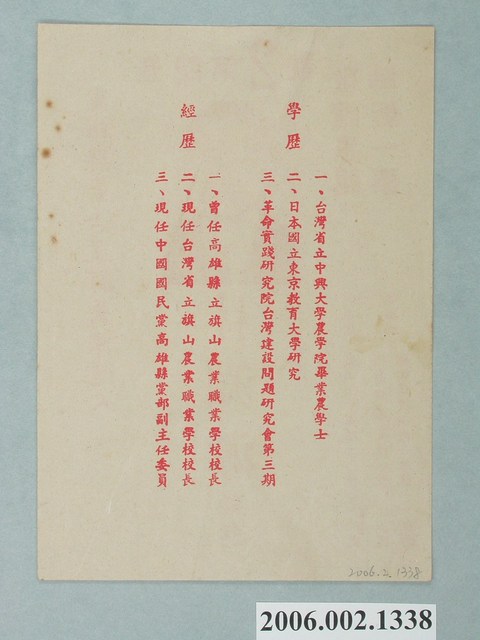 學歷
一、台灣省立中興大學農學院畢業農學士
二、日本國立東京教育大學研究
三、革命實踐研究院台灣建設問題研究會第三期
經歷
一、曾任高雄縣立旗山農業職業學校校長
二、現任台灣省立旗山農業職業學校校長
三、現任中國國民黨高雄縣黨部副主任委員
2006.2.1338
2006.002.1338